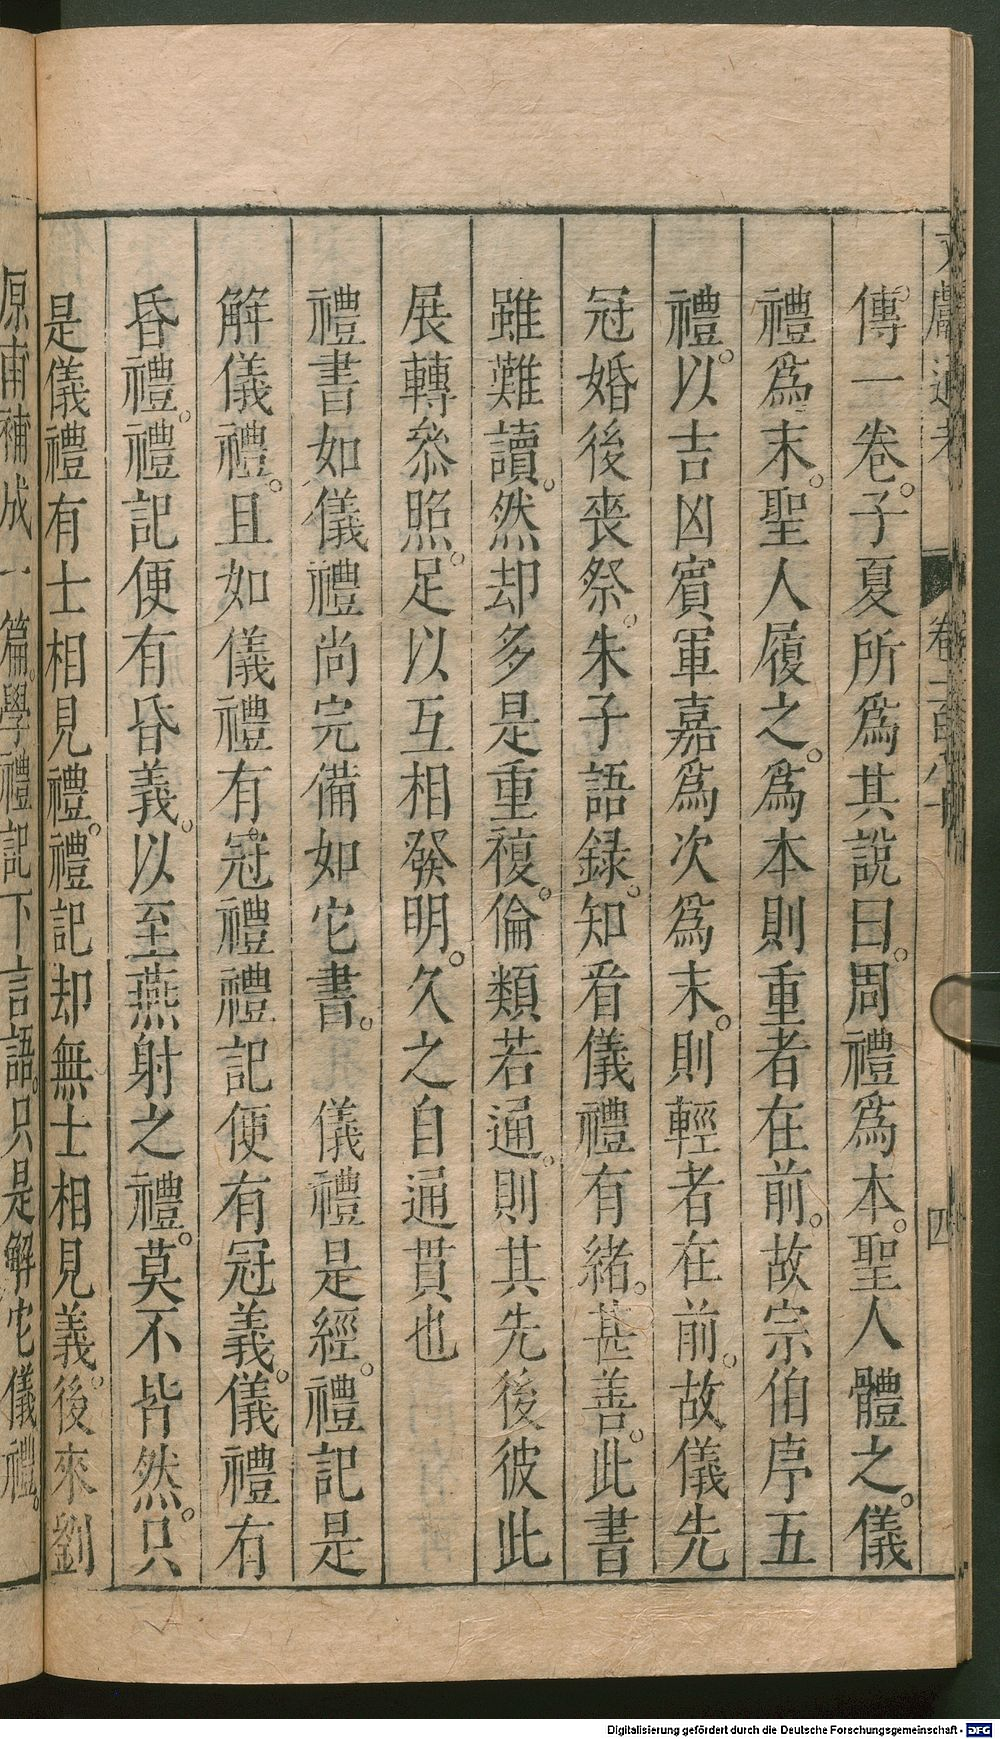 傳一卷。子夏所爲其說曰。周禮爲本。聖人體之。儀
禮爲末。聖人履之。爲本則重者在前。故宗伯序五
禮。以吉凶賓軍嘉爲次爲末。則輕者在前。故儀先
冠婚後喪祭。朱子語錄。知看儀禮有緒。甚善。此書
雖難讀。然却多是重複。倫類若通。則其先後彼此
展轉叅照。足以互相發明。久之自通貫也
禮書如儀禮尚完備如它書。　儀禮是經。禮記是
解儀禮。且如儀禮有冠禮禮記便有冠義。儀禮有
昏禮。禮記便有昏義。以至燕射之禮。莫不皆然。只
是儀禮有士相見禮。禮記却無士相見義。後來劉
原甫補成一篇。學禮記下言語。只是解它儀禮。
文獻通考　卷　四
Digitalisierung gefördert durch die Deutsche Forschungsgemeinschaft - DFG